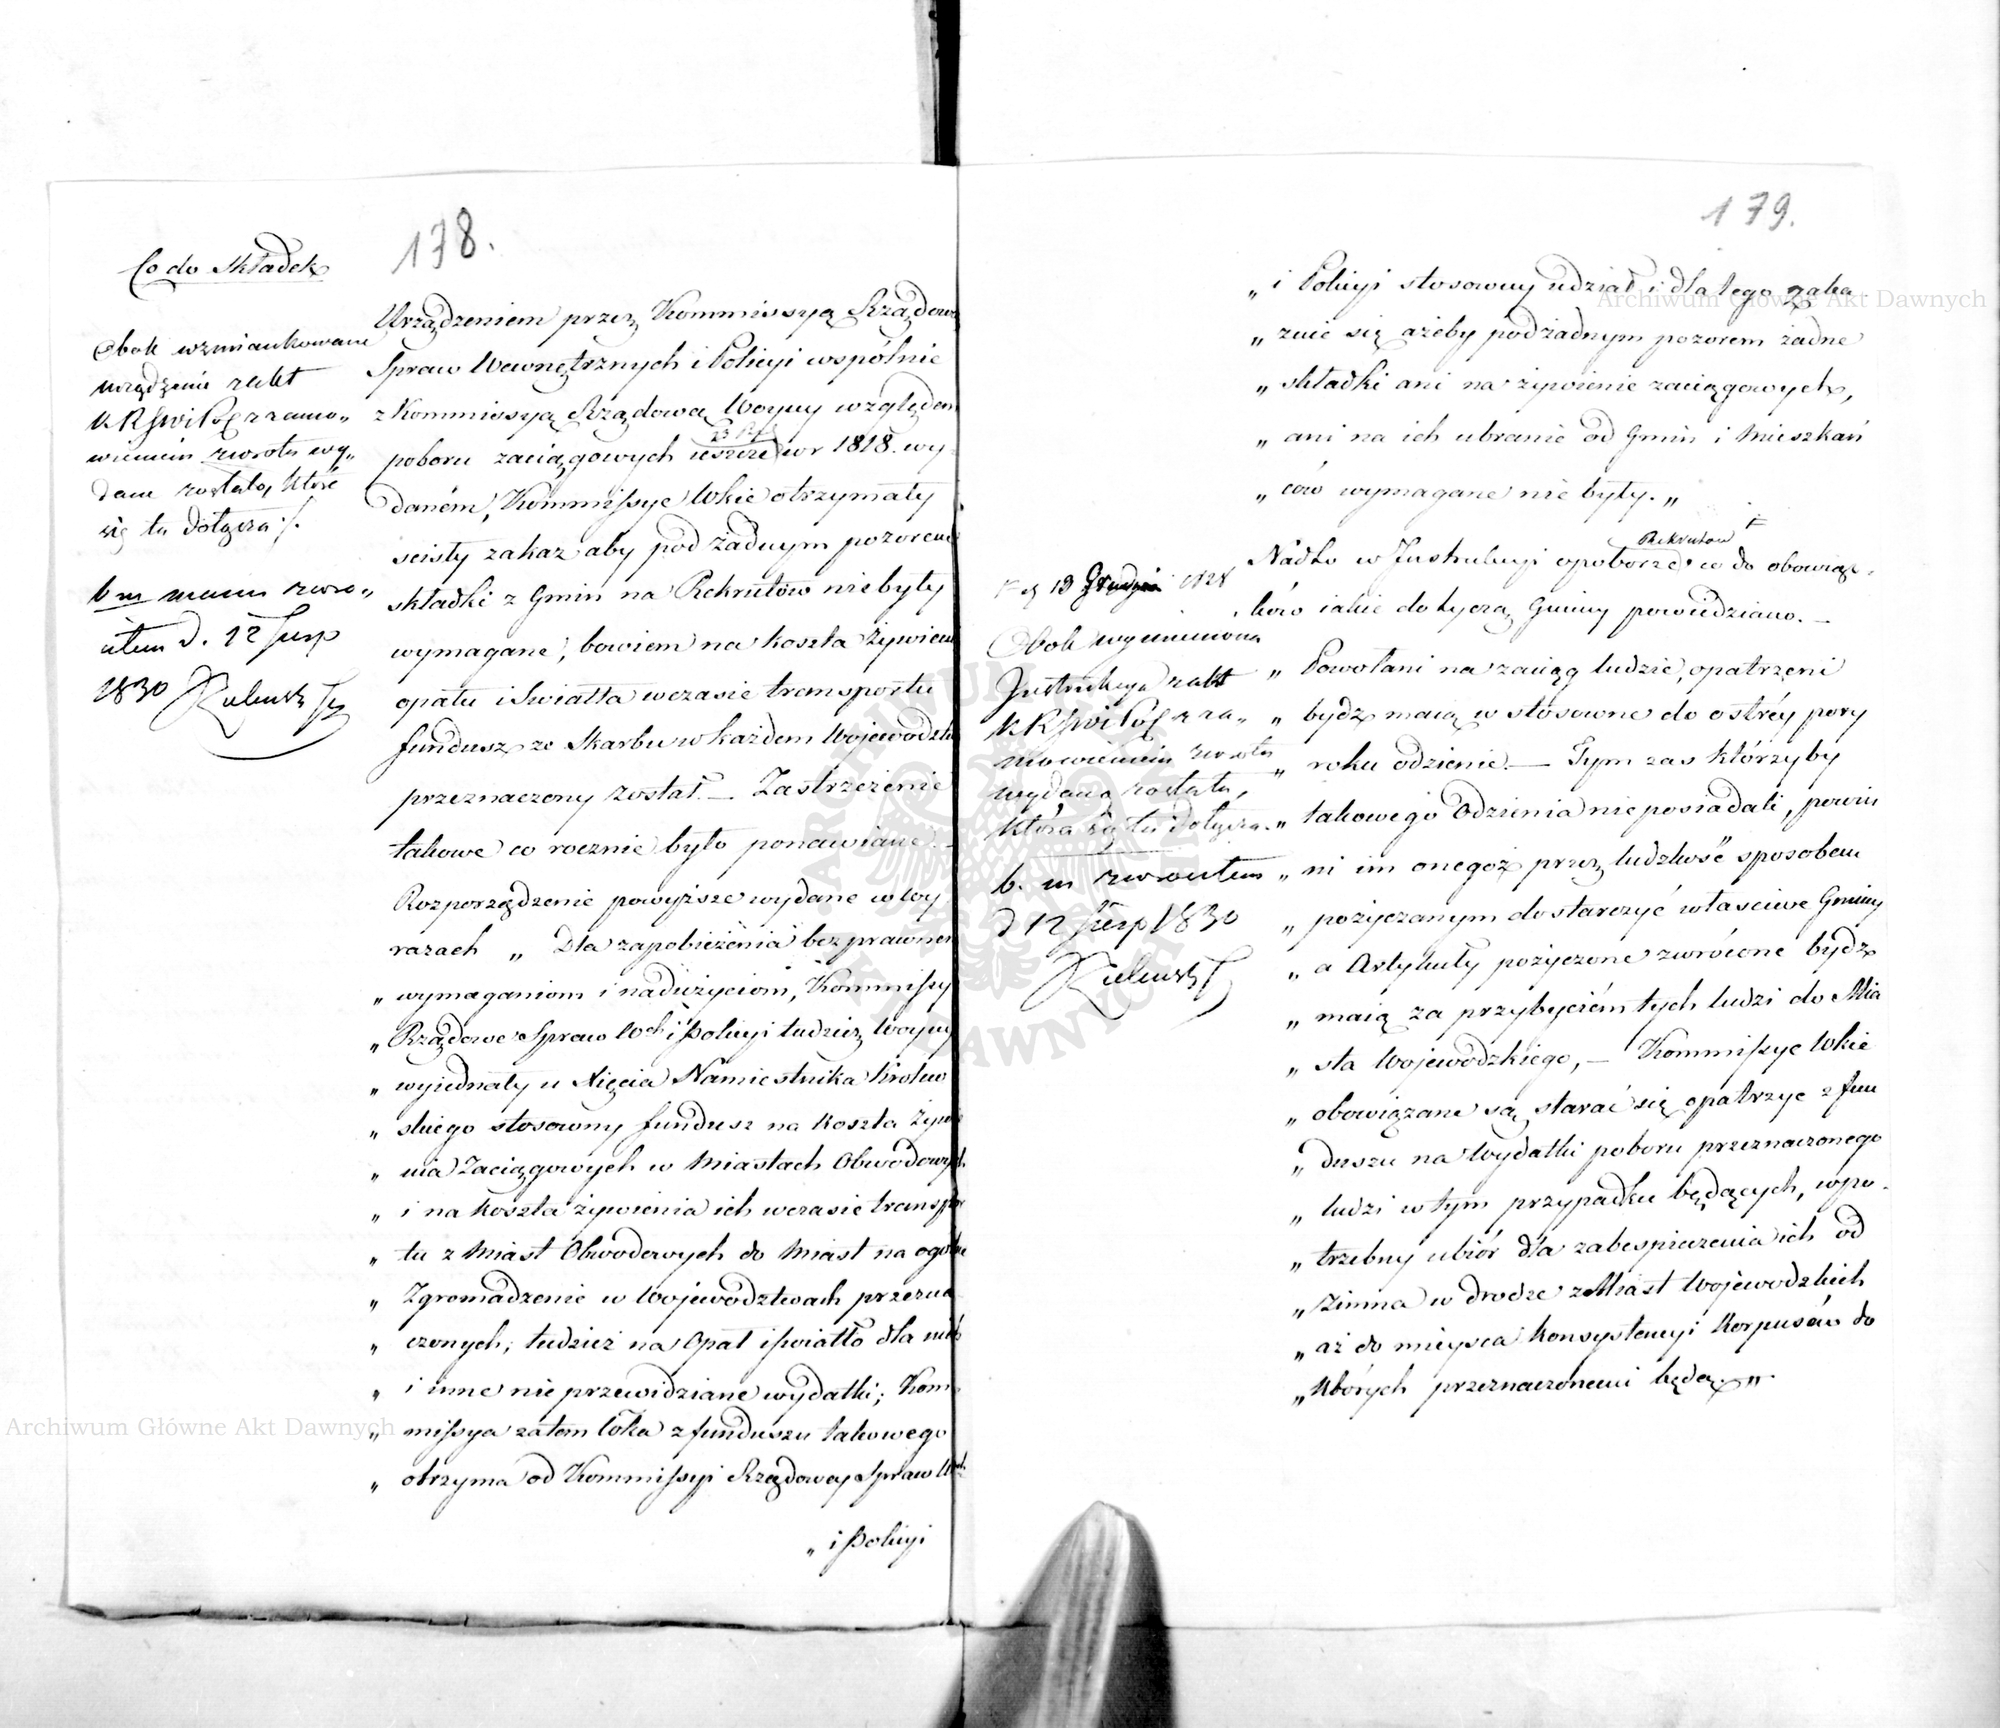 178.
Co do Składek
Obok wzmiankowane
urządzenie z akt
K R S W i Pol z zamó„
wieniem zwrotu wy„
dane zostało, które
się tu dołącza ./.
b m mam zwró„
citem d. 12 Sierp
1830
Urządzeniem przez Kommissyą Rządową
Spraw Wewnętrznych i Policyi wspólnie
z Kommissyą Rządową Woyny względem
poboru zaciągowych w r 1818. wy
daném, Kommissye Wkie otrzymały
scisły zakaz aby pod żadnym pozorem
składki z Gmin na Rekrutów nie były
wymagane, bowiem na koszta żywienia
opału i Swiatła w czasie transportu
fundusz ze Skarbu w każdem Województwie
przeznaczony został. — Zastrzeżenie
takowe co rocznie było ponawiane. —
Rozporządzenie powyższe wydane w wy
razach „ Dla zapobieżenia bezprawnem
„ wymaganiom i nadużyciom, Kommissye
„ Rządowe Spraw Wch i Policyi tudzież Woyny
„ wyiednały u Xięcia Namiestnika Królew
„ skiego stosowny fundusz na koszta żywie
„ nia Zaciągowych w Miastach Obwodowych
„ i na koszta żywienia ich w czasie transpor
„ tu z Miast Obwodowych do Miast na ogólne
„ Zgromadzenie w Województwach przezna
„ czonych; tudzież na Opał i światło dla nich
„ i inne nieprzewidziane wydatki; Kom„
„ missya zatem Wka z funduszu takowego
„ otrzyma od Kommissyi Rządowey Spraw Wch
„ i Policyi
179.
„ i Policyi stosowny udział i dla tego zaka
„ zuie się ażeby pod żadnym pozorem żadne
„ składki ani na żywienie zaciągowych,
„ ani na ich ubranie od Gmin i Mieszkań
„ ców wymagane nie były. „
Rekrutów
Nadto w Instrukcyi o poborze co do obowiąz„
ków iakie dotyczą Gminy powiedziano. —
13 Grudnia 1828
Obok wymieniona
Instrukcya z akt
K R S W i Pol z za„
mówieniem zwrotu
wydaną została,
która się tu dołącza.
b. m zwróciłem
d 12 Sierp 1830
„ Powołani na zaciąg ludzie, opatrzeni
„ bydź maią w stosowne do ostréy pory
„ roku odzienie. — Tym zas którzyby
„ takowego Odzienia nieposiadali, powin
„ ni im onegóż przez ludzkość sposobem
„ pożyczanym dostarczyć własciwe Gminy
„ a Artykuły pożyczone zwrócone bydź
„ maią za przybyciém tych ludzi do Mia
„ sta Wojewódzkiego, — Kommissye Wkie
„ obowiązane są starać się opatrzyc z fun
„ duszu na Wydatki poboru przeznaczonego
„ ludzi w tym przypadku będących, w po„
„ trzebny ubiór dla zabespieczenia ich od
„ zimna w drodze z Miast Wojewódzkich
„ aż do mieysca Konsystencyi Korpusów do
„ których przeznaczonemi będą. „
Archiwum Główne Akt Dawnych
Archiwum Główne Akt Dawnych